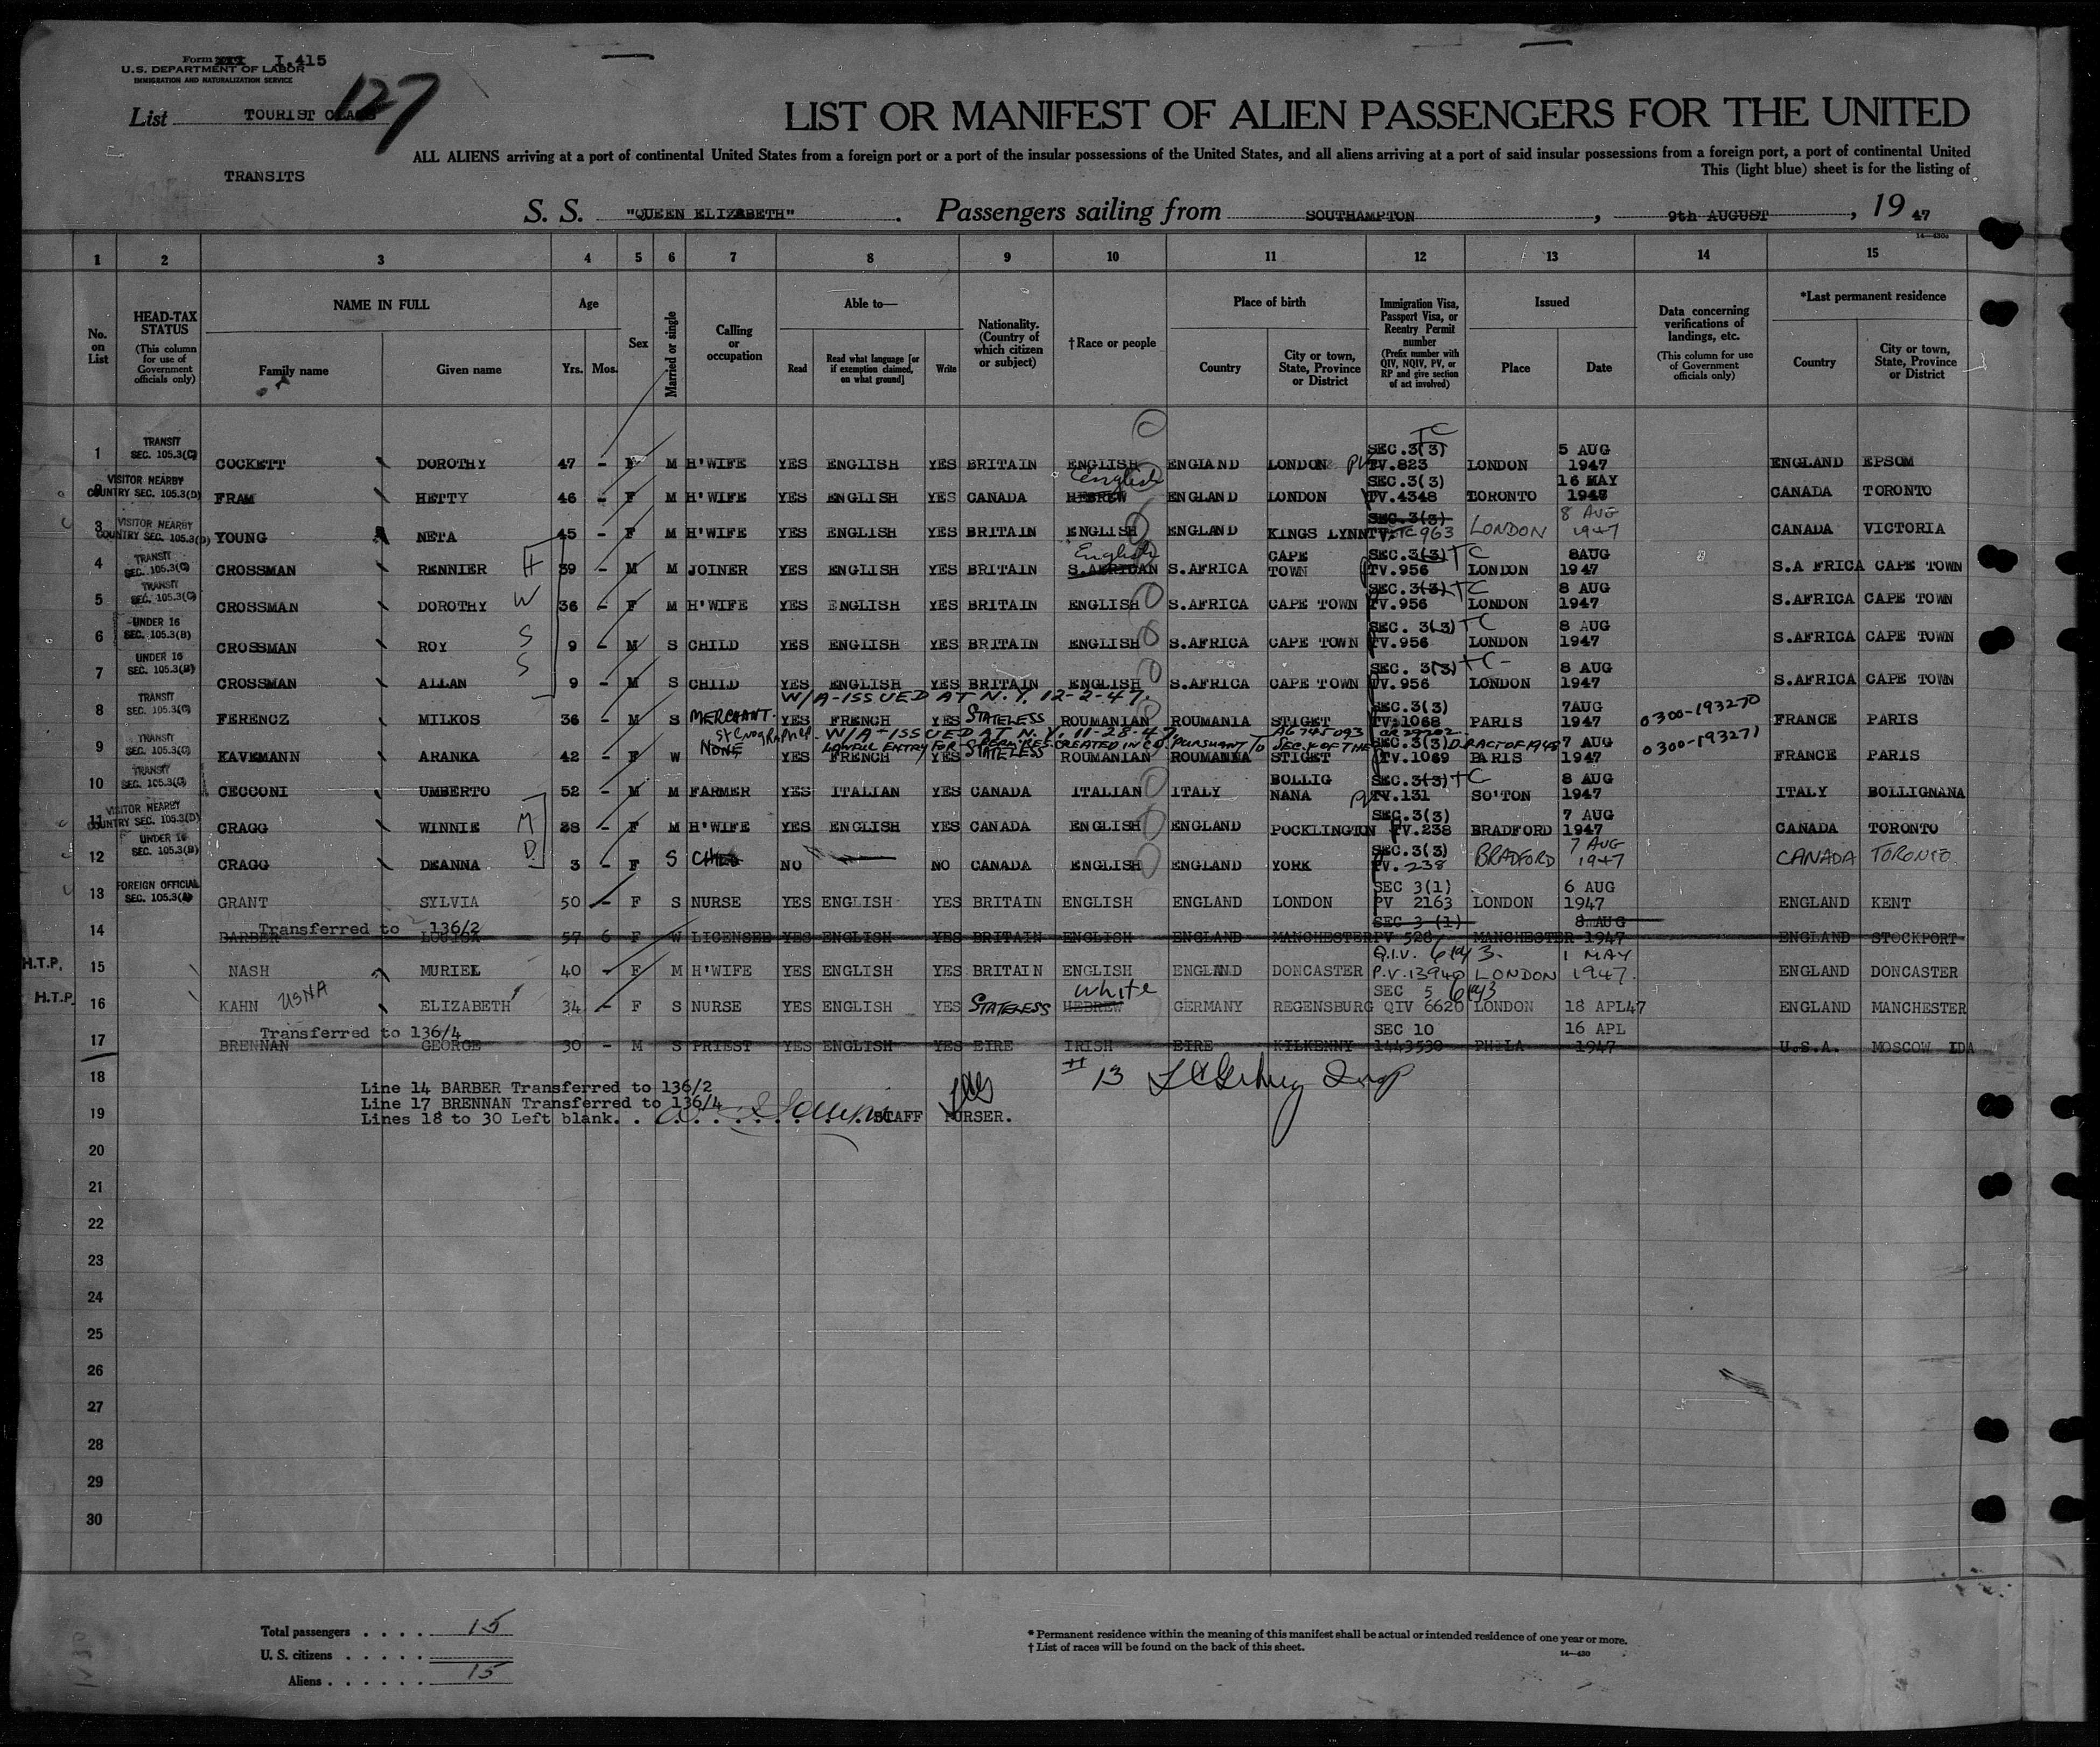 Form I.415
U.S. DEPARTMENT OF LABOR
IMMIGRATION AND NATURALIZATION SERVICE
List TOURIST CLASS 127
TRANSITS
LIST OR MANIFEST OF ALIEN PASSENGERS FOR THE UNITED
ALL ALIENS arriving at a port of continental United States from a foreign port or a port of the insular possessions of the United States, and all aliens arriving at a port of said insular possessions from a foreign port, a port of continental United
This (light blue) sheet is for the listing of
S. S. "QUEEN ELIZABETH" . Passengers sailing from SOUTHAMPTON , 9th AUGUST , 19 47
1 2 3 4 5 6 7 8 9 10 11 12 13 14 15
No. on List
HEAD-TAX STATUS (This column for use of Government officials only)
NAME IN FULL Family name Given name
Age Yrs. Mos.
Sex
Married or single
Calling or occupation
Able to— Read Read what language [or if exemption claimed, on what ground] Write
Nationality. (Country of which citizen or subject)
†Race or people
Place of birth Country City or town, State, Province or District
Immigration Visa, Passport Visa, or Reentry Permit number (Prefix number with QIV, NQIV, PV, or RP and give section of act involved)
Issued Place Date
Data concerning verifications of landings, etc. (This column for use of Government officials only)
*Last permanent residence Country City or town, State, Province or District
1 TRANSIT SEC. 105.3(C) COCKETT DOROTHY 47 - F M H'WIFE YES ENGLISH YES BRITAIN ENGLISH ENGLAND LONDON SEC.3(3) TC PV TV.823 LONDON 5 AUG 1947 ENGLAND EPSOM
2 VISITOR NEARBY COUNTRY SEC. 105.3(D) FRAM HETTY 46 - F M H'WIFE YES ENGLISH YES CANADA HEBREW English ENGLAND LONDON SEC.3(3) TV.4348 TORONTO 16 MAY 1947 CANADA TORONTO
3 VISITOR NEARBY COUNTRY SEC. 105.3(D) YOUNG NETA 45 - F M H'WIFE YES ENGLISH YES BRITAIN ENGLISH ENGLAND KINGS LYNN SEC.3(3) TV. TC 963 LONDON 8 AUG 1947 CANADA VICTORIA
4 TRANSIT SEC. 105.3(C) CROSSMAN RENNIER H 39 - M M JOINER YES ENGLISH YES BRITAIN S.AFRICAN English S.AFRICA CAPE TOWN SEC.3(3) TC TV.956 LONDON 8AUG 1947 S.A FRICA CAPE TOWN
5 TRANSIT SEC. 105.3(C) CROSSMAN DOROTHY W 36 - F M H'WIFE YES ENGLISH YES BRITAIN ENGLISH S.AFRICA CAPE TOWN SEC.3(3) TC TV.956 LONDON 8 AUG 1947 S.AFRICA CAPE TOWN
6 UNDER 16 SEC. 105.3(B) CROSSMAN ROY S 9 - M S CHILD YES ENGLISH YES BRITAIN ENGLISH S.AFRICA CAPE TOWN SEC. 3(3) TC TV.956 LONDON 8 AUG 1947 S.AFRICA CAPE TOWN
7 UNDER 16 SEC. 105.3(B) CROSSMAN ALLAN S 9 - M S CHILD YES ENGLISH YES BRITAIN ENGLISH S.AFRICA CAPE TOWN SEC. 3(3) TC TV.956 LONDON 8 AUG 1947 S.AFRICA CAPE TOWN
W/A-ISSUED AT N.Y. 12-2-47.
8 TRANSIT SEC. 105.3(C) FERENCZ MILKOS 36 - M S MERCHANT. YES FRENCH YES STATELESS ROUMANIAN ROUMANIA STIGET SEC.3(3) TV.1068 PARIS 7AUG 1947 0300-193270 FRANCE PARIS
Stenographer - W/A-ISSUED AT N.Y. 11-28-47. A6 745 093
LAWFUL ENTRY FOR PERM. RES. CREATED IN CO. PURSUANT TO SEC. 4 OF THE D.P. ACT OF 1948
9 TRANSIT SEC. 105.3(C) KAVEMANN ARANKA 42 - F W NONE YES FRENCH YES STATELESS ROUMANIAN ROUMANIA STIGET SEC.3(3) TV.1069 PARIS 7 AUG 1947 0300-193271 FRANCE PARIS
10 TRANSIT SEC. 105.3(C) CECCONI UMBERTO 52 - M M FARMER YES ITALIAN YES CANADA ITALIAN ITALY BOLLIG NANA SEC.3(3) TC PV TV.131 SO'TON 8 AUG 1947 ITALY BOLLIGNANA
11 VISITOR NEARBY COUNTRY SEC. 105.3(D) CRAGG WINNIE M 38 - F M H'WIFE YES ENGLISH YES CANADA ENGLISH ENGLAND POCKLINGTON SEC.3(3) PV.238 BRADFORD 7 AUG 1947 CANADA TORONTO
12 UNDER 16 SEC. 105.3(B) CRAGG DEANNA D 3 - F S CHILD NO NO CANADA ENGLISH ENGLAND YORK SEC.3(3) PV. 238 BRADFORD 7 AUG 1947 CANADA TORONTO
13 FOREIGN OFFICIAL SEC. 105.3(A) GRANT SYLVIA 50 - F S NURSE YES ENGLISH YES BRITAIN ENGLISH ENGLAND LONDON SEC 3(1) PV 2163 LONDON 6 AUG 1947 ENGLAND KENT
14 Transferred to 136/2 BARBER LOUISA 57 6 F W LICENSEE YES ENGLISH YES BRITAIN ENGLISH ENGLAND MANCHESTER SEC 3 (1) PV 528 MANCHESTER 8 AUG 1947 ENGLAND STOCKPORT
H.T.P. 15 NASH MURIEL 40 - F M H'WIFE YES ENGLISH YES BRITAIN ENGLISH ENGLAND DONCASTER Q.I.V. 6(a)3. P.V.13940 LONDON 1 MAY 1947. ENGLAND DONCASTER
H.T.P. 16 KAHN USNA ELIZABETH 34 - F S NURSE YES ENGLISH YES STATELESS HEBREW white GERMANY REGENSBURG SEC 5 QIV 6620 LONDON 18 APL47 ENGLAND MANCHESTER
17 Transferred to 136/4 BRENNAN GEORGE 30 - M S PRIEST YES ENGLISH YES EIRE IRISH EIRE KILKENNY SEC 10 1443530 PHILA 16 APL 1947 U.S.A. MOSCOW IDA
18 Line 14 BARBER Transferred to 136/2
Line 17 BRENNAN Transferred to 136/4
19 Lines 18 to 30 Left blank. STAFF PURSER.
# 13
20
21
22
23
24
25
26
27
28
29
30
Total passengers . . . . 15
U. S. citizens . . . . .
Aliens . . . . . . 15
* Permanent residence within the meaning of this manifest shall be actual or intended residence of one year or more.
† List of races will be found on the back of this sheet.
14—430